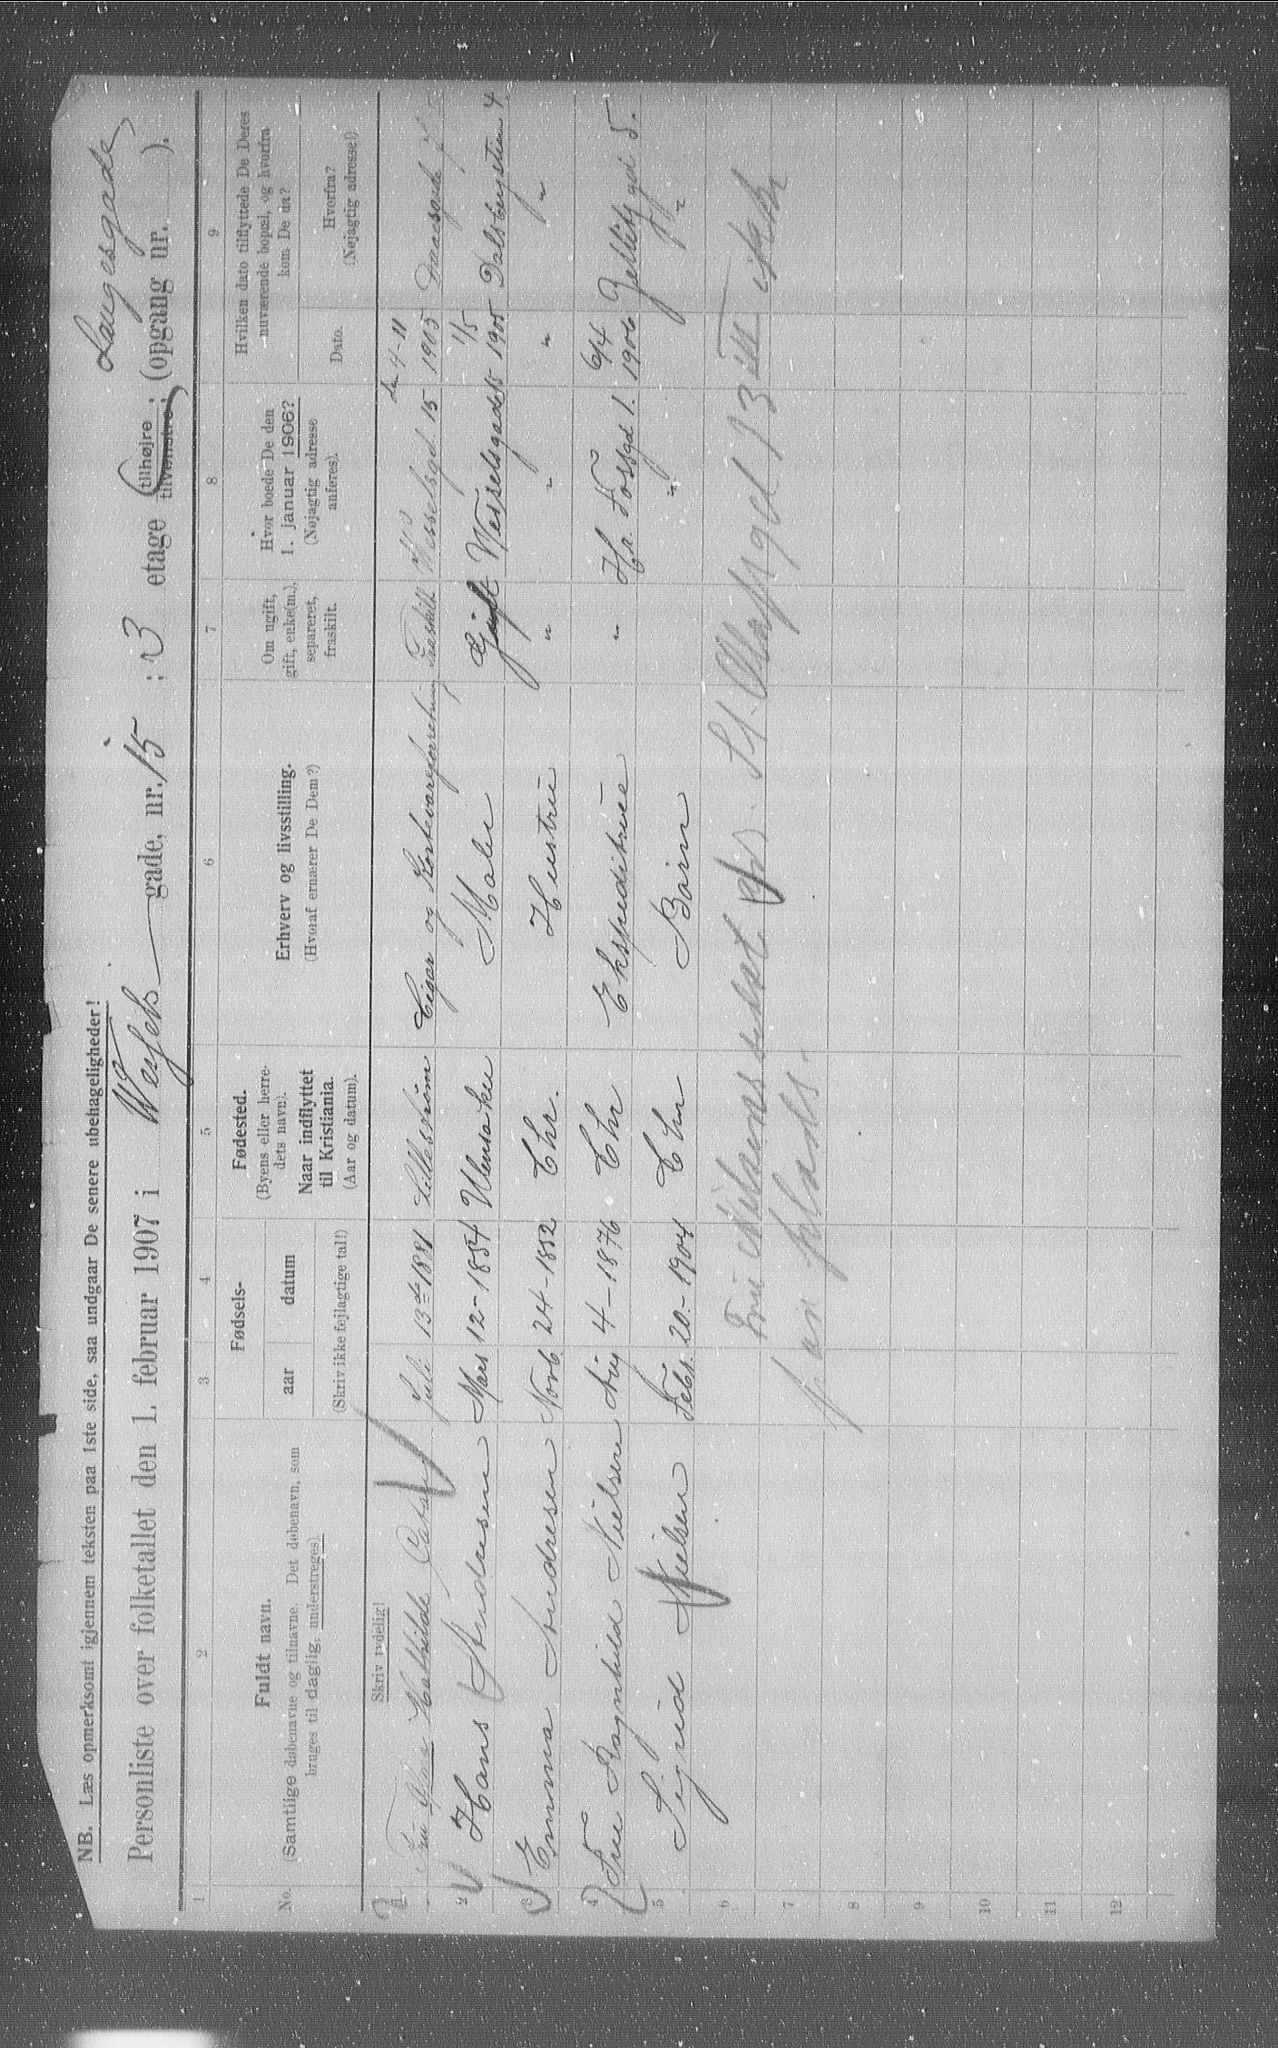 NB. Læs opmerksomt igjennem teksten paa 1ste side, saa undgaar De senere ubehageligheder!
Langesgade,
Personliste over folketallet den 1. februar 1907 i Wessels gade, nr. 15 : 3 etage tilhøjre tilvenstre ; (opgang nr. ).
1 2 3 4 5 6 7 8 9
No. Fuldt navn. (Samtlige døbenavne og tilnavne. Det døbenavn, som bruges til daglig, understreges). Skriv tydelig!
Fødsels- aar datum (Skriv ikke fejlagtige tal!)
Fødested. (Byens eller herredets navn). Naar indflyttet til Kristiania. (Aar og datum).
Erhverv og livsstilling. (Hvoraf ernærer De Dem?)
Om ugift, gift, enke(m.), separeret, fraskilt.
Hvor boede De den 1. januar 1906? (Nøjagtig adresse anføres).
Hvilken dato tilflyttede De Deres nuværende bopæl, og hvorfra kom De da? Dato. Hvorfra? (Nøjagtig adresse!)
1 Fru Mathilde Juli 13de 1881 Lillestrøm Cigar og Kortevareforretning Fraskilt Wesselsgd. 15 den 4-11 1905
2 Hans Andresen Mars 12 - 1854 Ulensaker Maler Gift Wesselsgade 15 1/5 1905 Dalsbergstien 4
3 Emma Andresen Novb. 24 - 1852 Chr. Hustru " " " "
4 Fru Ragnhild Nielsen Aug 4 - 1876 Chr Ekspeditrice " Hr. Fossgd 1. 6/4 1906 Zettlitz gd. 5.
5 Sigrid Nielsen Febr. 20. - 1904 Chr Barn " "
6 Fru Nielsens sidst St. Olafs gd 13
7
8
9
10
11
12